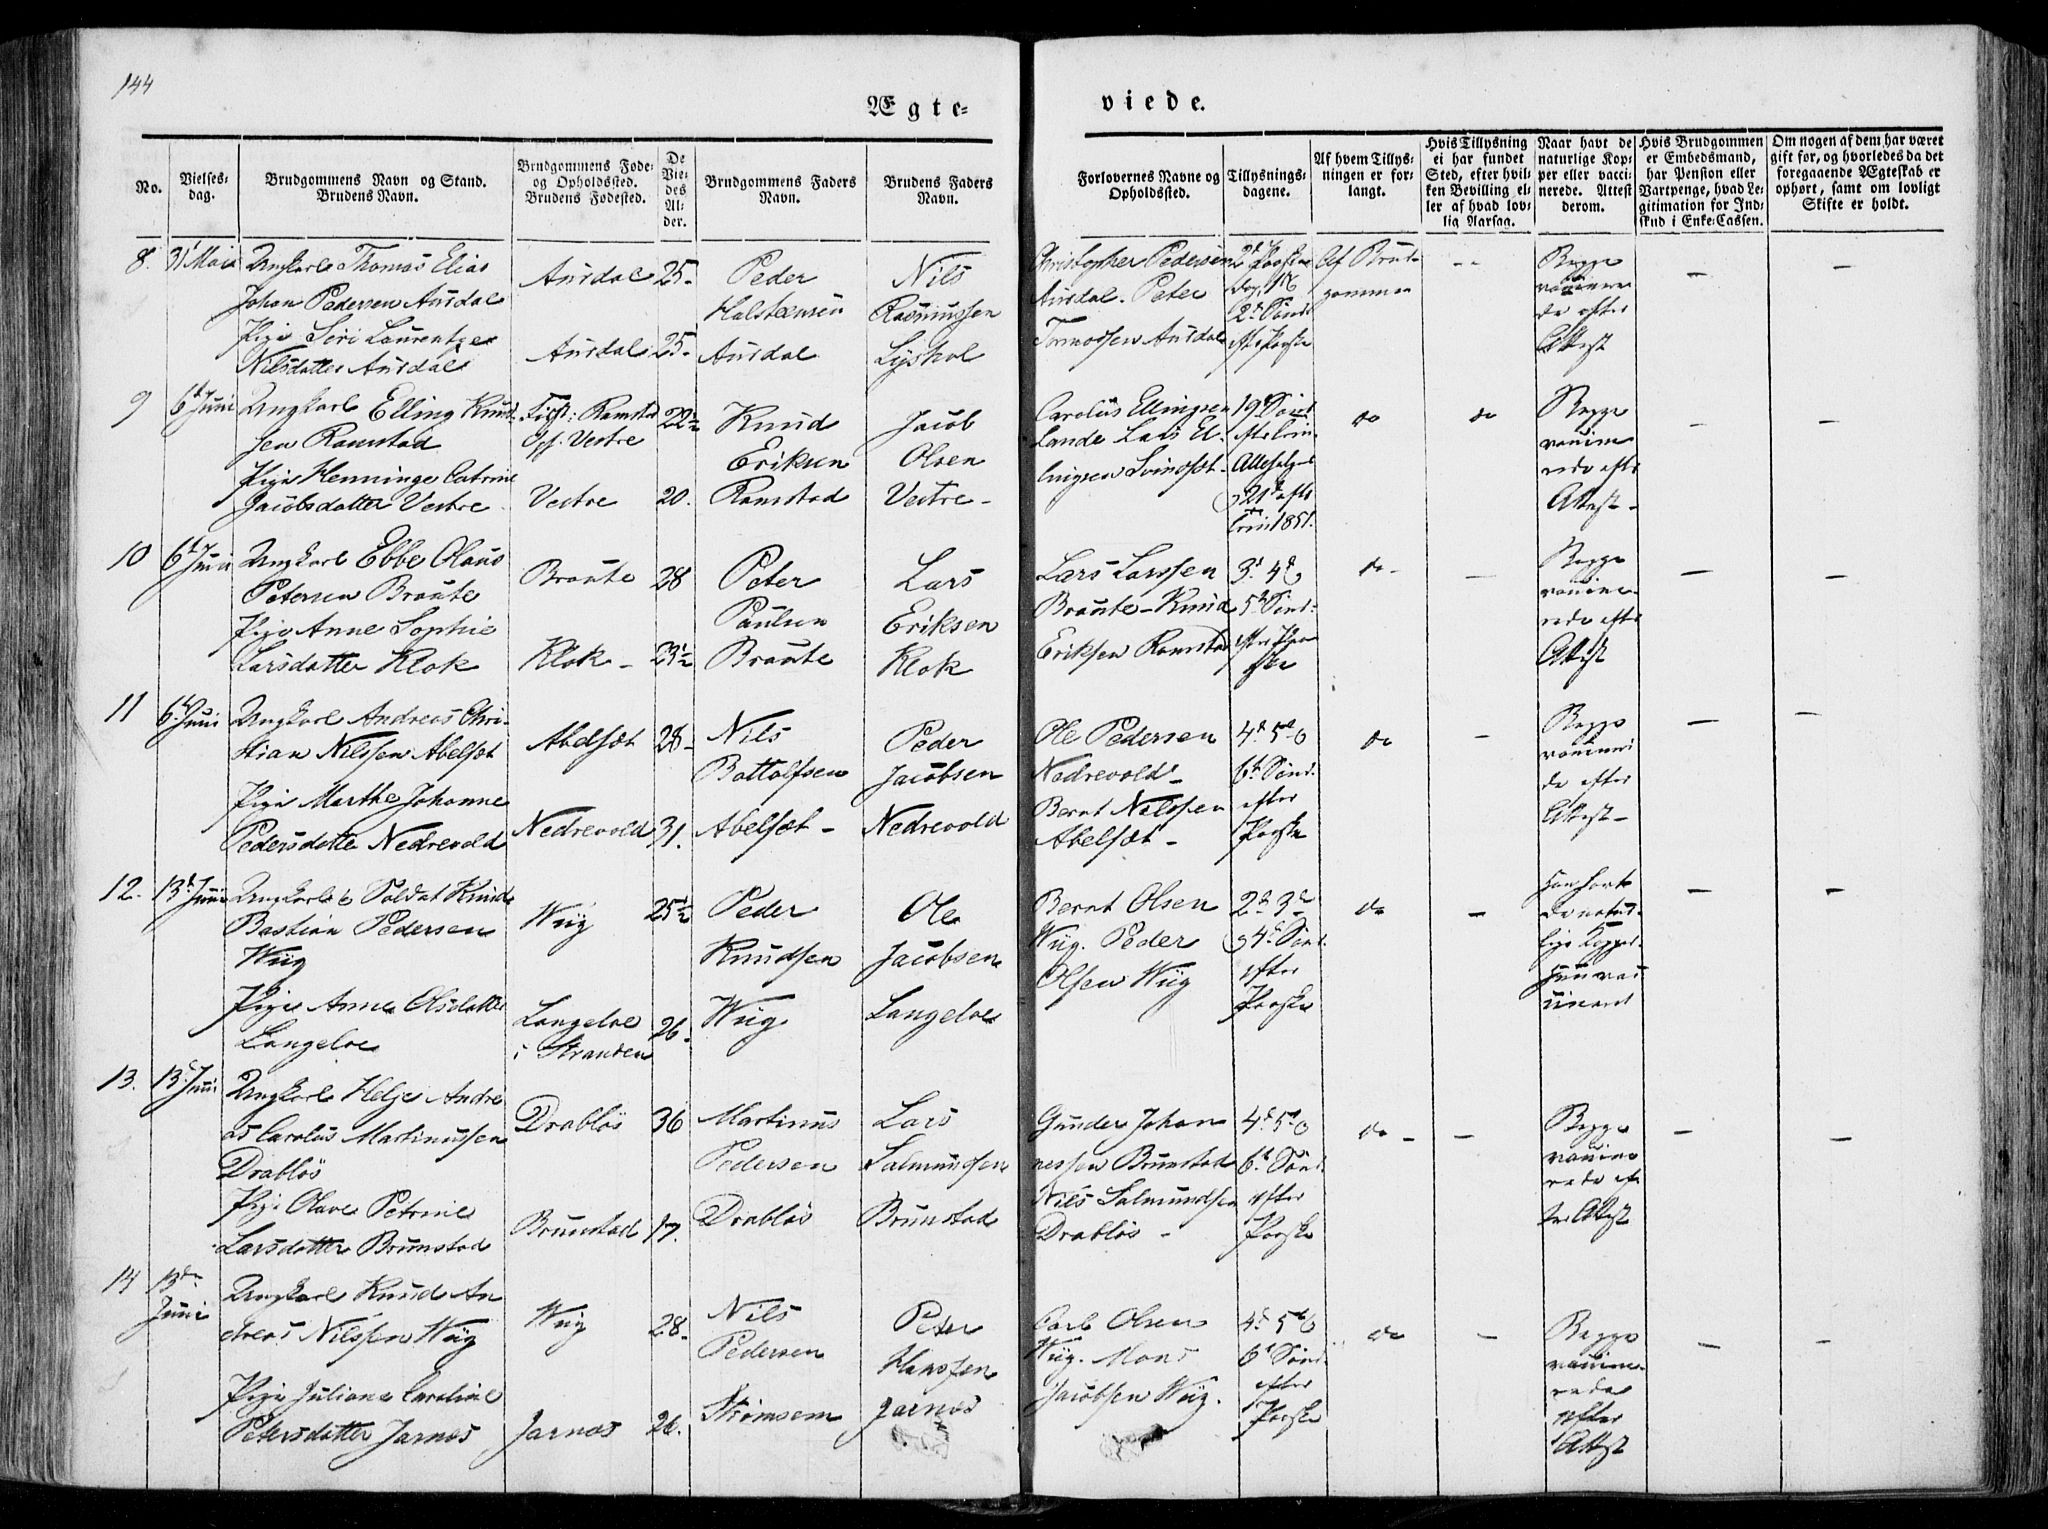 144
Ægte-
viede.
No.
Vielses-
dag.
Brudgommens Navn og Stand.
Brudens Navn.
Brudgommens Føde-
og Opholdssted.
Brudens Fødested.
De
Vie-
des
Al-
der.
Brudgommens Faders
Navn.
Brudens Faders
Navn.
Forlovernes Navne og
Opholdssted.
Tillysnings-
dagene.
Af hvem Tillys-
ningen er for-
langt.
Hvis Tillysning
ei har fundet
Sted, efter hvil-
ken Bevilling el-
ler af hvad lov-
lig Aarsag.
Naar havt de
naturlige Kop-
per eller vacci-
nerede. Attest
derom.
Hvis Brudgommen
er Embedsmand,
har Pension eller
Vartpenge, hvad Le-
gitimation for Ind-
skud i Enke-Cassen.
Om nogen af dem har været
gift før, og hvorledes da det
foregaaende Ægteskab er
ophørt, samt om lovligt
Skifte er holdt.
8. 31 Mai Ungkarl Thomas Elias
Johan Pedersen Aursdal
Pige Seri Laurentze
Nilsdatter Aursdal
Aursdal 25-
Aursdal 25.
Peder
Halsteensen
Aursdal
Nils
Rasmussen
Lyshol
Christopher Pedersen
Aursdal. Peter
Tormodsen Aursdal
2d Paaske
Dag, 1st &
2d Sønd:
efter Paaske
Af Brud-
gommen
--
Begge
vaccinere-
de efter
Attest
—
—
9 6t Juni Ungkarl Elling Knud-
sen Ramstad
Pige Henninge Catrine
Jacobsdatter Vestre
Føst: Ramstad
Oph. Vestre
Vestre
22½
20.
Knud
Eriksen
Ramstad
Jacob
Olsen
Vestre-
Carolus Ellingsen
Lande Lars El-
lingsen Svindset-
19d Sønd
efter Trin.
Allehelgens
& 21d efter
Trin 1851.
do
do
Begge
vaccine-
rede efter
Attest-
—
—
10 6t Juni Ungkarl Ebbe Olaus
Petersen Braute
Pige Anne Sophie
Larsdatter Klok
Braute
Klok -
28
23½
Peter
Paulsen
Braute
Lars
Eriksen
Klok
Lars Larssen
Braute - Knud
Eriksen Ramstad
3d 4d &
5d Sønd:
efter Paa-
ske
do -
—
Begge
vaccine-
rede efter
Attest
—
—
11 6t Juni Ungkarl Andreas Chri-
stian Nilssen Abelsæt
Pige Marthe Johanne
Pedersdatter Nedrevold
Abelsæt
Nedrevold
28-
31.
Nils
Bottolfsen
Abelsæt -
Peder
Jacobsen
Nedrevold
Ole Pedersen
Nedrevold -
Bernt Nilssen
Abelsæt -
4d 5d &
6d Sønd.
efter
Paaske
do
-
Begge
vaccinere-
de efter
Attest-
—
—
12. 13d Juni Ungkarl & Soldat Knud
Bastian Pedersen
Wiig
Pige Anne Olsdatter
Langeloe
Wiig
Langeloe
i Stranden
25½
26.
Peder
Knudsen
Wiig
Ole
Jacobsen
Langeloe
Bernt Olsen
Wiig. Peder
Olsen Wiig
2d 3d
& 4d Sønd.
efter
Paaske
do
-
Han havt
de natur-
lige Kopper.
Hun vac-
cineret
—
—
13. 13d Juni Ungkarl Helge Andre-
as Carolus Martinussen
Drabløs
Pige Olave Petrine
Larsdatter Brunstad
Drabløs
Brunstad
36
17.
Martinus
Pedersen
Drabløs
Lars
Salmundsen
Brunstad
Gunder Johan-
nessen Brunstad
Nils Salmundsen
Drabløs -
4d 5d &
6d Sønd.
efter
Paaske
do -
—
Begge
vaccine-
rede ef-
ter Attest
—
—
14 13de Juni Ungkarl Knud An-
dreas Nilssen Wiig
Pige Juliane Caroline
Petersdatter Jarnes
Wiig
Jarnes
28.
26.
Nils
Pedersen
Strømsem
Peter
Hanssen
Jarnes
Carl Olsen
Wiig. Mons
Jacobsen Wiig.
4d 5d &
6d Sønd-
efter
Paaske
do
—
Begge
vaccine-
rede
efter
Attest
—
—